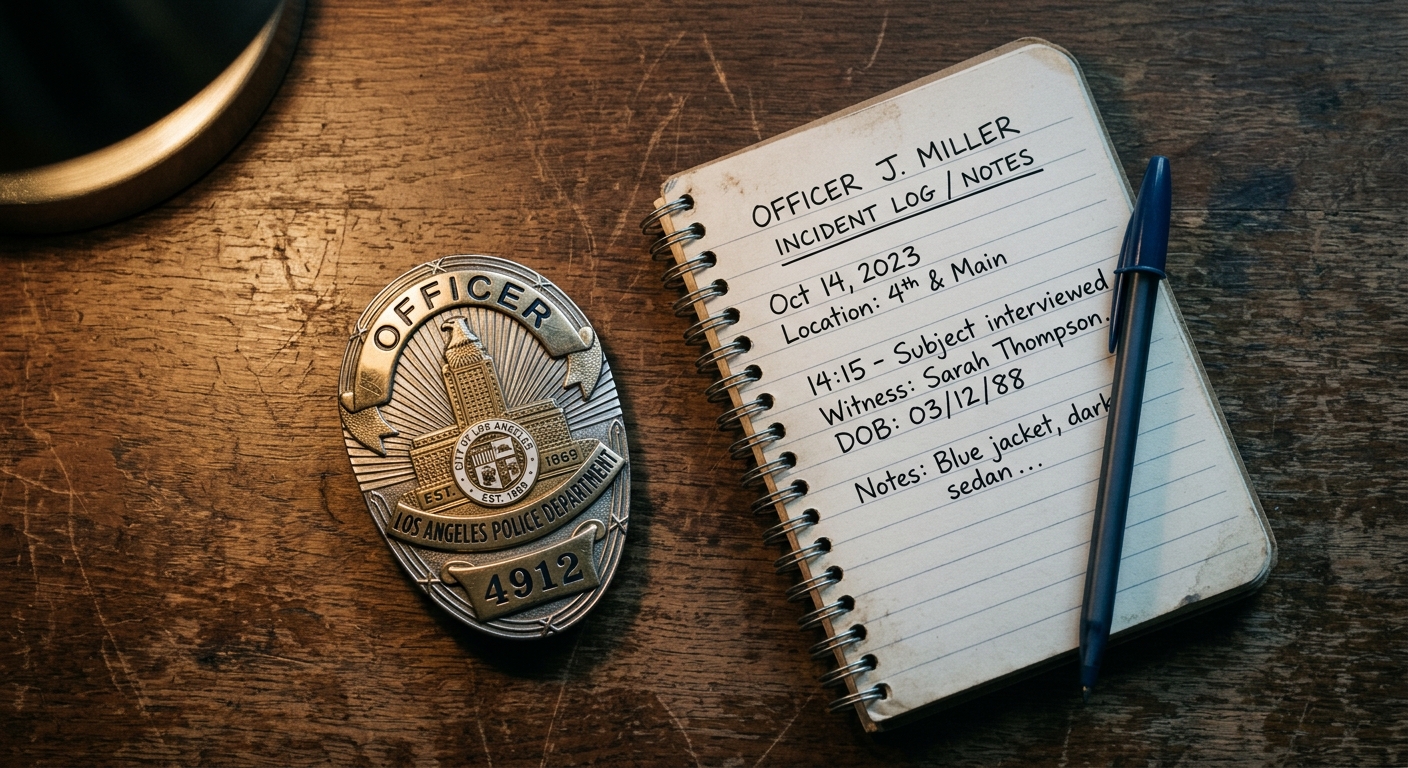 OFFICER
CITY OF LOS ANGELES
EST. 1869
EST. 1869
LOS ANGELES POLICE DEPARTMENT
4912
OFFICER J. MILLER
INCIDENT LOG / NOTES
Oct 14, 2023
Location: 4th & Main
14:15 – Subject interviewed
Witness: Sarah Thompson.
DOB: 03/12/88
Notes: Blue jacket, dark
sedan ...